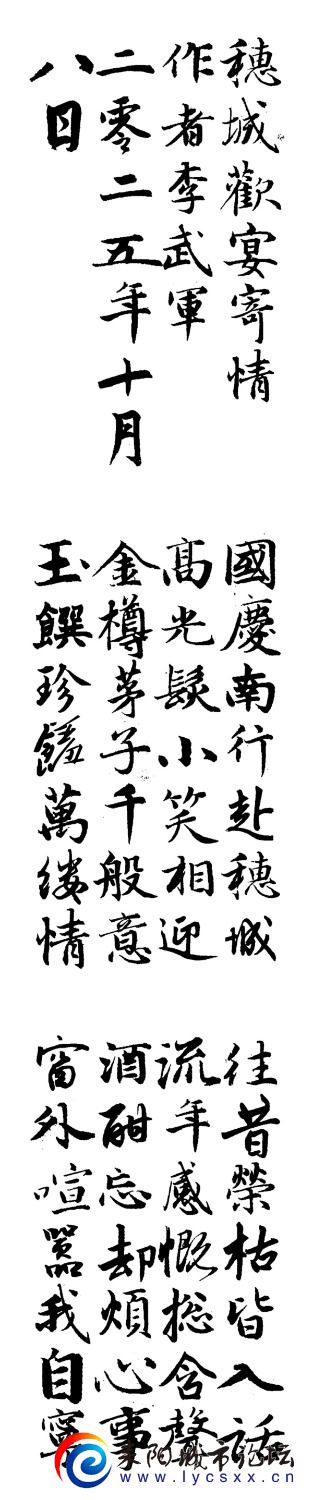 穗城歡宴寄情
作者李武軍
二零二五年十月
八日
國慶南行赴穗城
髙光髮小笑相迎
金樽茅子千般意
玉饌珍饈萬缕情
往昔榮枯皆入話
流年感慨総含聲
酒酣忘却煩心事
窗外喧囂我自寧
www.lycsxx.cn